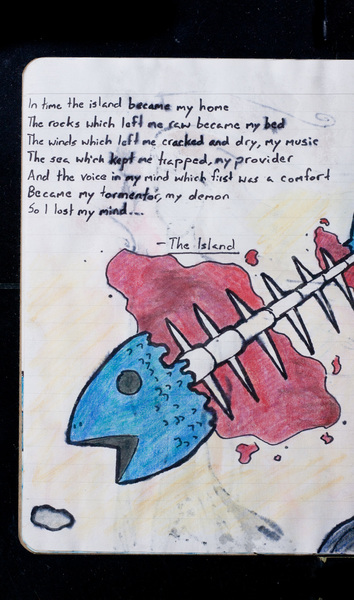 In time the island became my home
The rocks which left me raw became my bed
The winds which left me cracked and dry, my music
The sea which kept me trapped, my provider
And the voice in my mind which first was a comfort
Became my tormentor, my demon
So I lost my mind...
- The Island